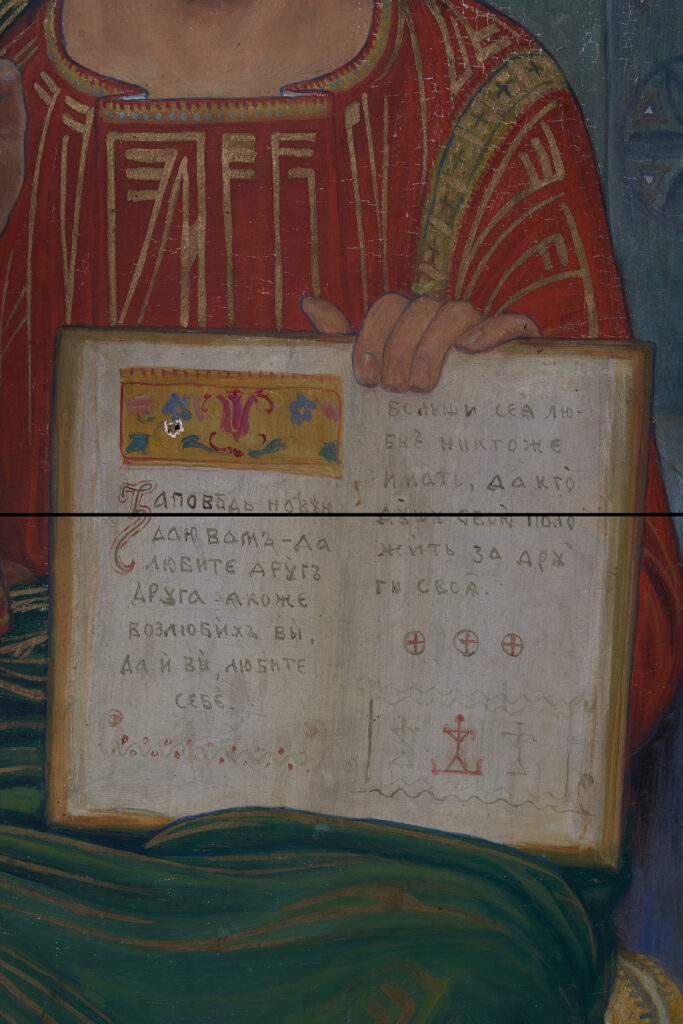 Заповѣдь новꙋю
даю вамъ-да
любите дрꙋгъ
дрꙋга. ꙗкоже
возлюбихъ вы̀,
да и҆ вы̀, любите
себѐ.
больши сеѧ̀ лю-
бвѐ никтоже
имать, да кто̀
дꙋшꙋ свою̀ поло
жи́тъ за дрꙋ̀
ги своѧ̀.